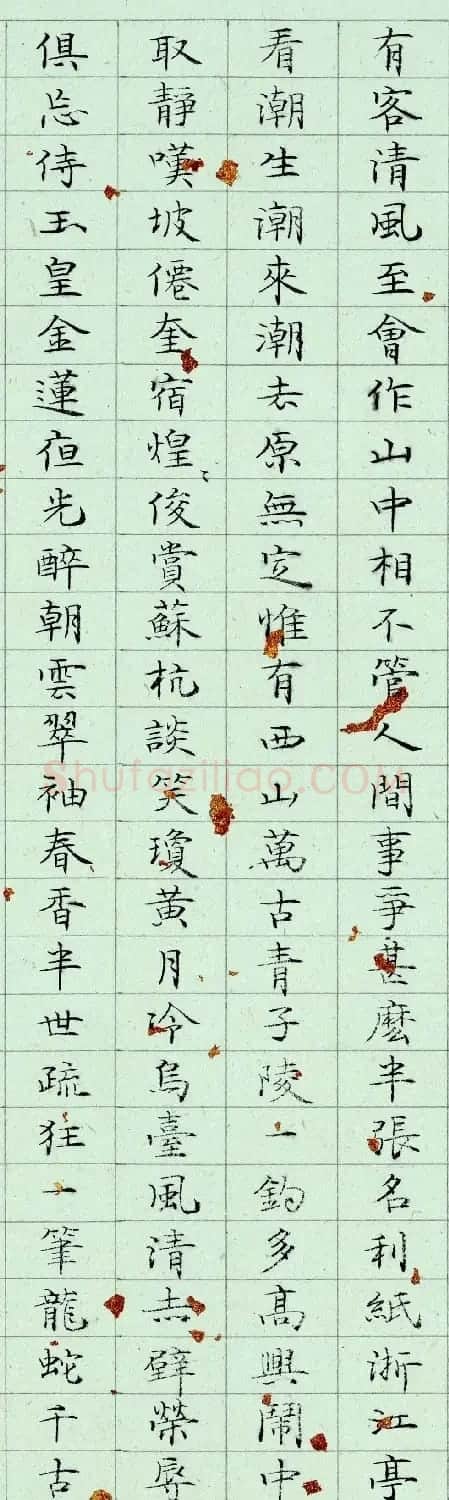 有客清風至會作山中相不管人間事爭甚麼半張名利紙浙江亭
看潮生潮來潮去原無定惟有西山萬古青子陵一釣多高興鬧中
取靜嘆坡僊奎宿煌俊賞蘇杭談笑瓊黃月冷烏臺風清赤壁榮辱
俱忘侍玉皇金蓮夜光醉朝雲翠袖春香半世疏狂一筆龍蛇千古
shufaziliao.com